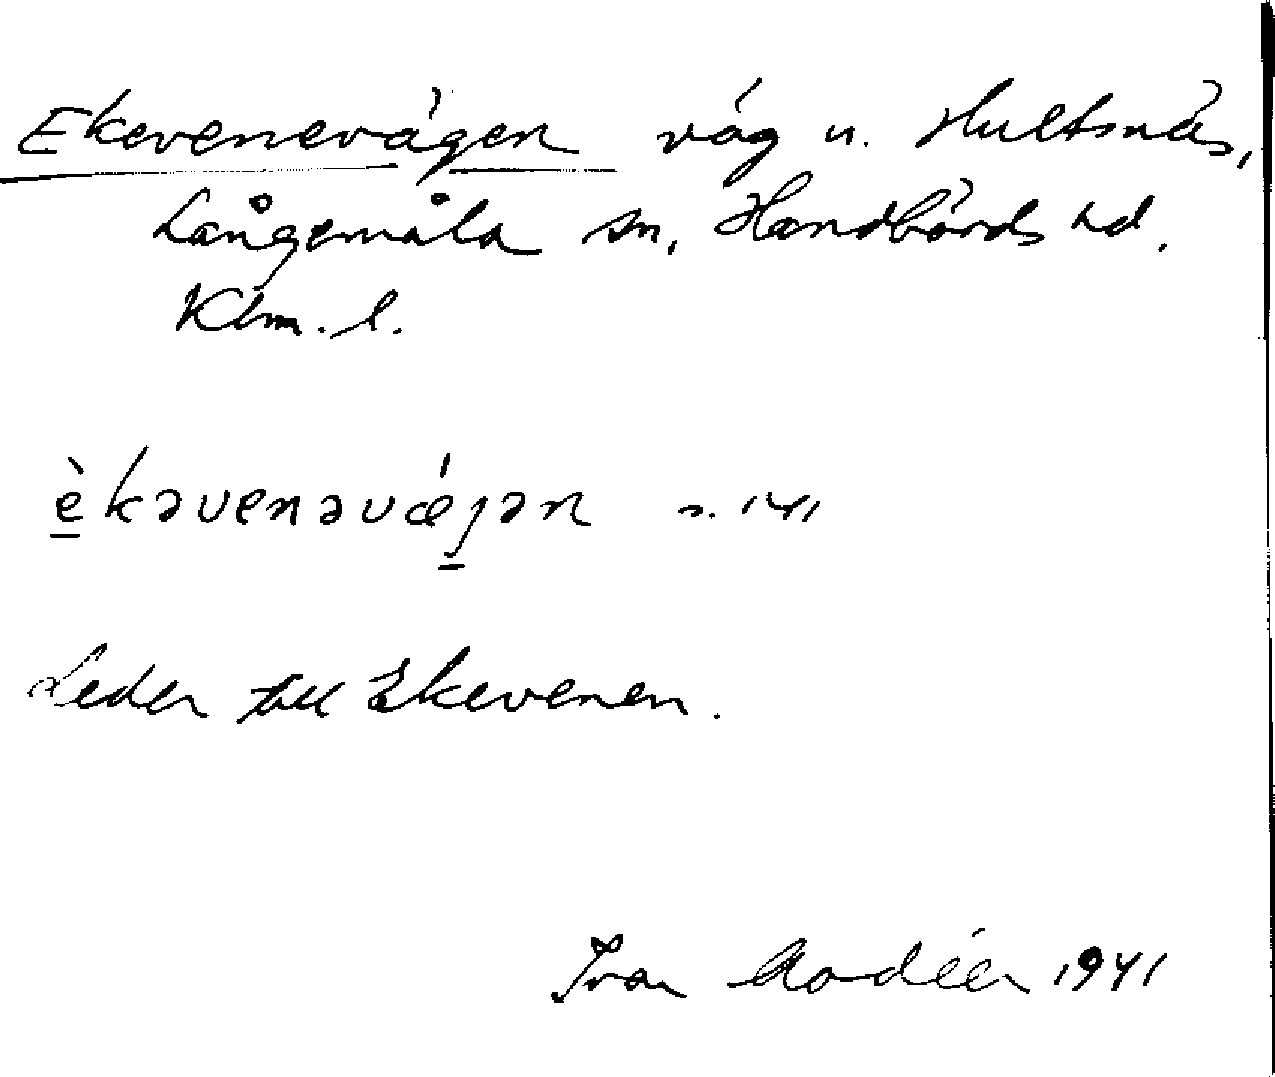 Ekevenevägen väg u. Hultsnäs,
Långemåla sn, Handbörds hd.
Klm. l.
èkəvenəvǽjən s. 141
Leder till Ekevenen.
Ivar Modéer 1941